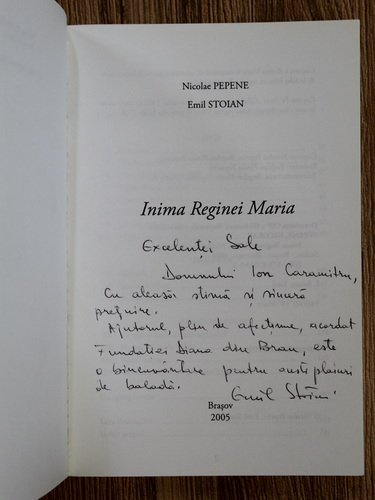 Nicolae PEPENE
Emil STOIAN
Inima Reginei Maria
Excelenței Sale
Domnului Ion Caramitru,
Cu aleasă stimă și sinceră
prețuire.
Ajutorul, plin de afecțiune, acordat
Fundației Diana din Bran, este
o binecuvântare pentru aceste plaiuri
de baladă.
Emil Stoian
Brașov
2005